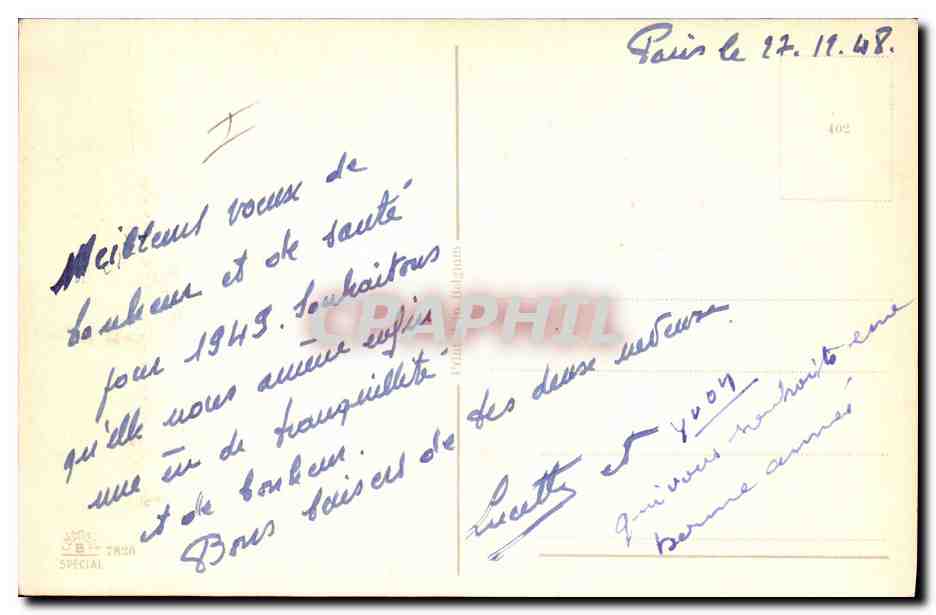 Paris le 27.12.48.
402
I
Meilleurs voeux de
bonheur et de santé
pour 1949. Souhaitons
qu'elle nous amène enfin
une ère de tranquillité
et de bonheur.
Bons baisers de tes deux
Lucette et Yvon
qui vous souhaite une
bonne année
Printed in Belgium
CPAPHIL
B
7820
SPECIAL